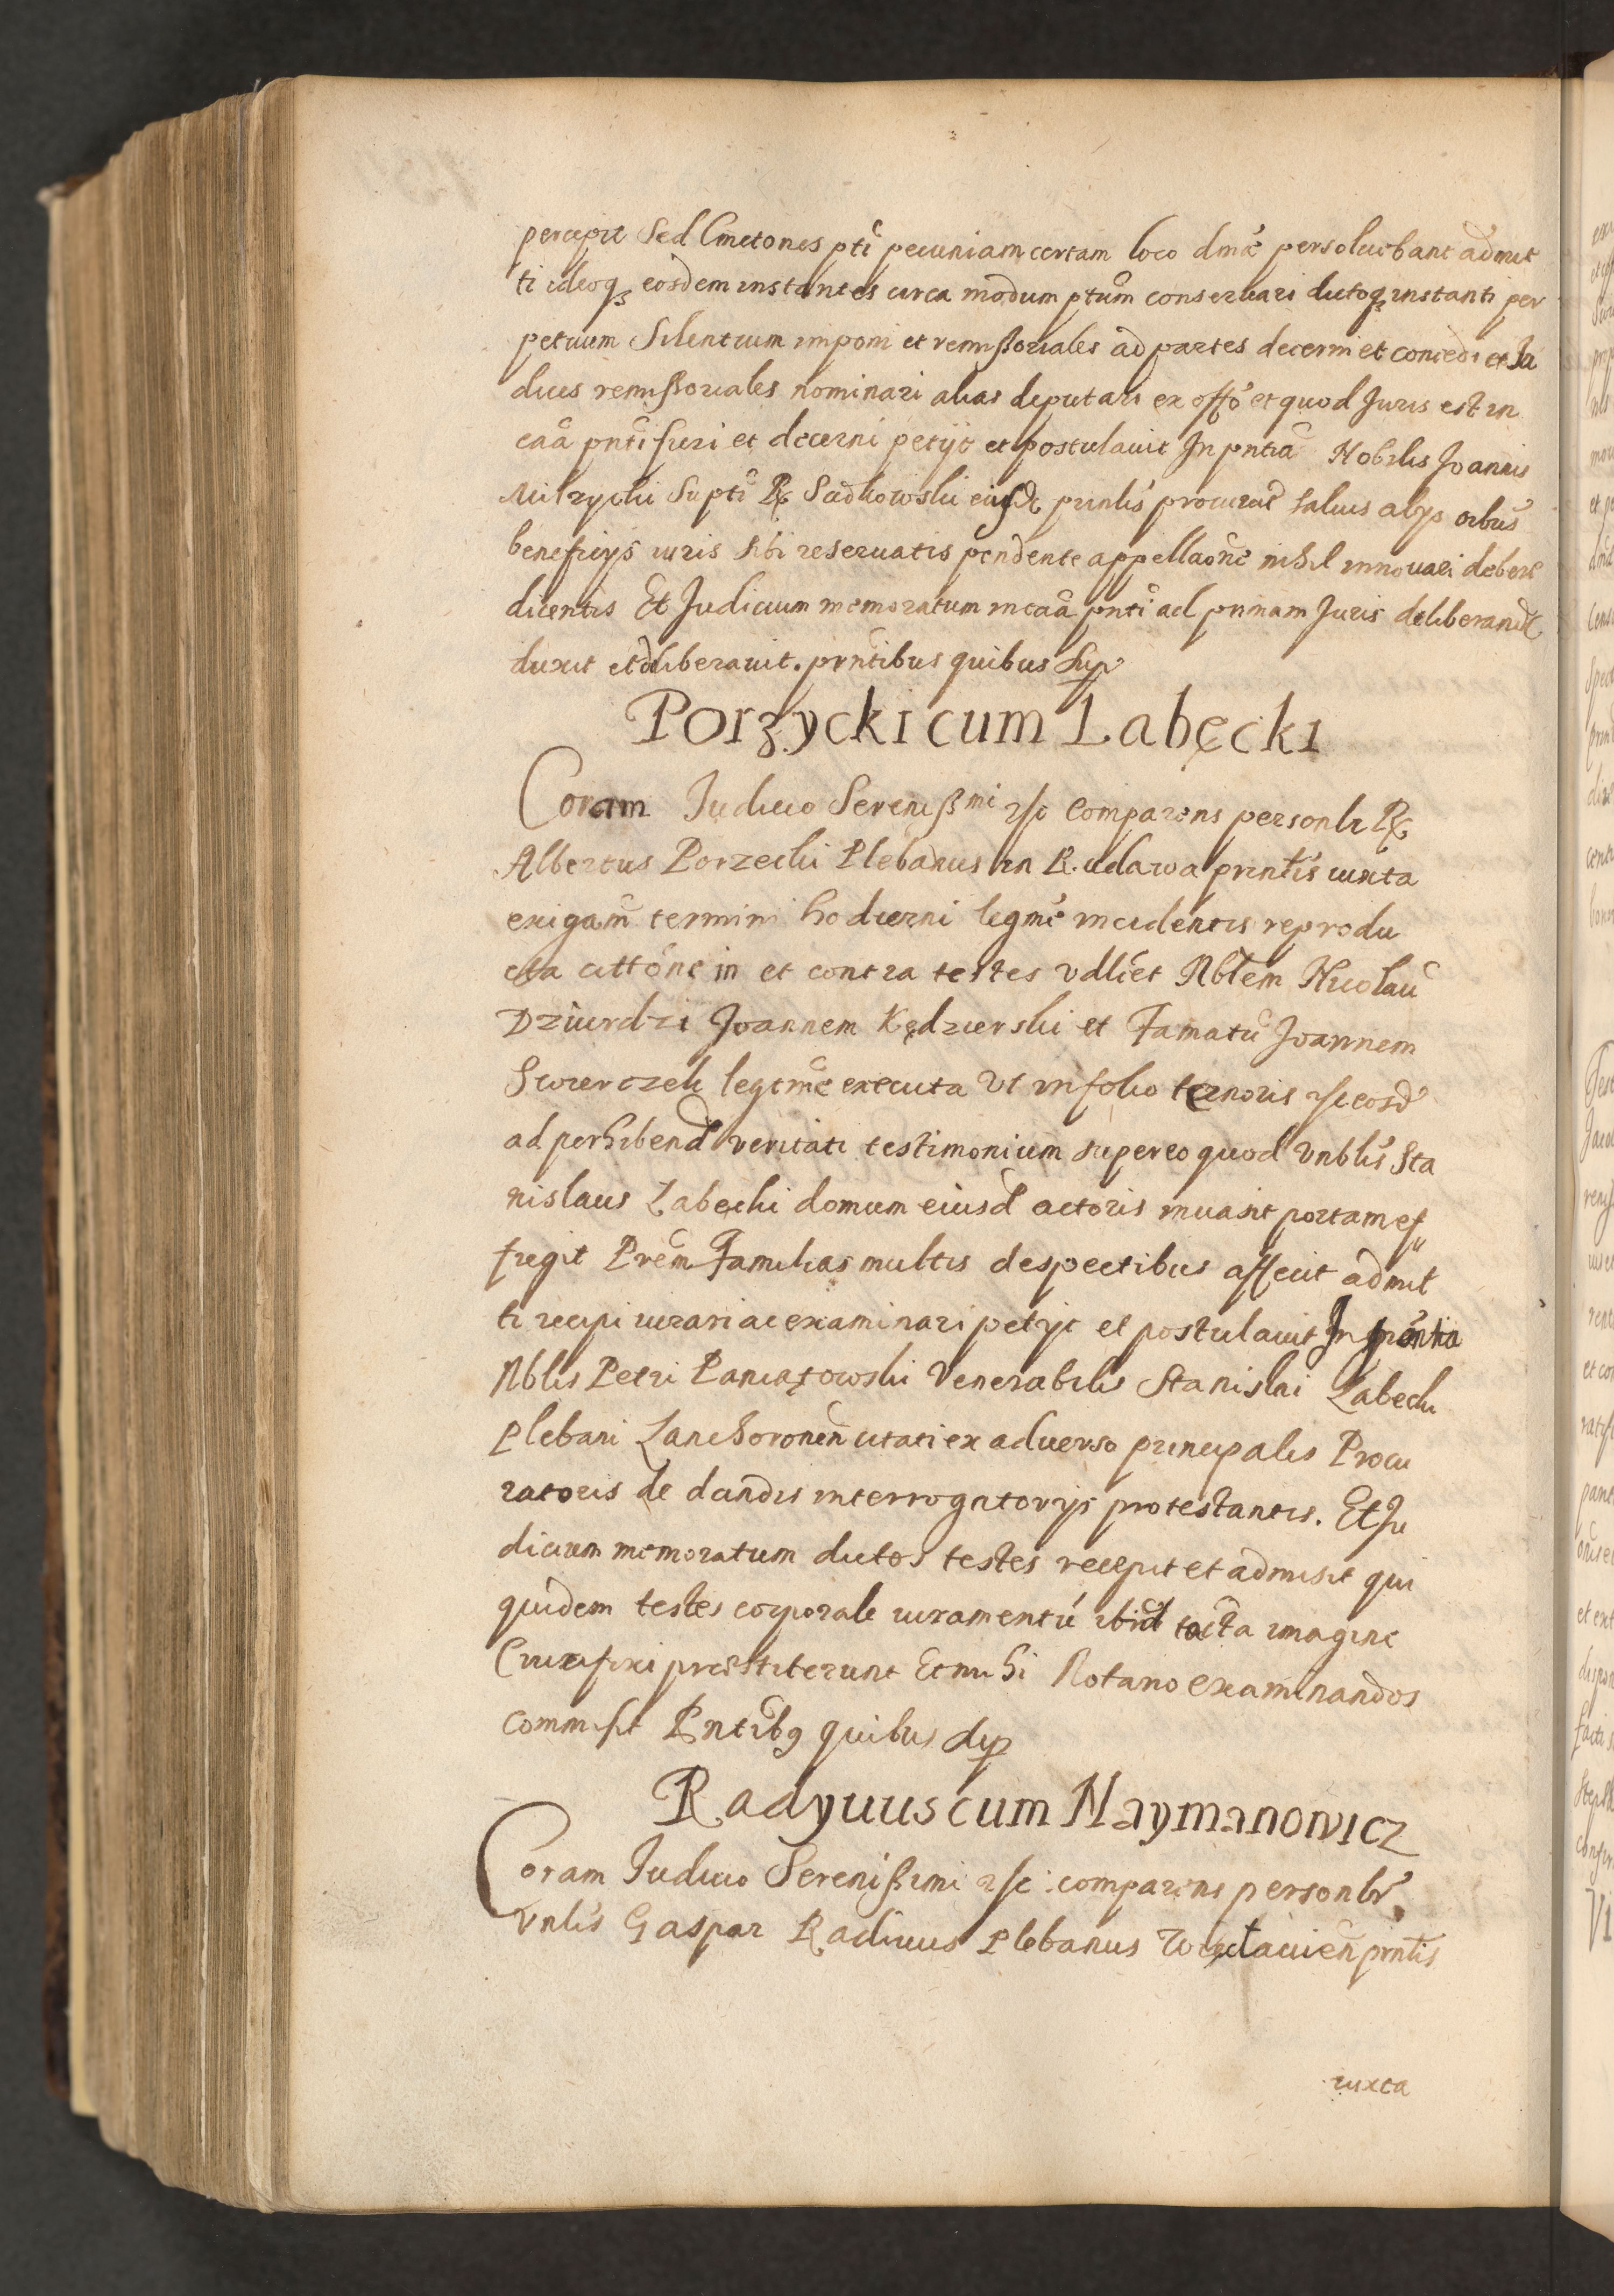 percepit Sed Cmetones pti pecuniam certam loco dmæ persoluebant admit
ti ideoq eosdem instantes circa modum ptum conseruari dictoq instanti per
petuum Silentium imponi et remißoriales ad partes decerni et concedi et Ju
dices remißoriales nominari alias deputari ex offo et quod Juris est in
caa pnti fieri et decerni petijt et postulauit In pntia Nobilis Joannis
Milzycki Supti R Sadkowski eiusde prinlis procurat saluis alijs oibus
beneficijs iuris sibi reseruatis pendente appellaone nihil innouari debere
dicentis Et Judicium memoratum in caa pnti ad primam Juris deliberand
duxit et deliberauit. prntibus quibus Sup
Porzycki cum Labęcki
Coram Judicio Sereniß mi etc comparens personlr R
Albertus Porzecki Plebanus in Rudawa prinlis iuxta
exigam termini hodierni legme incidentis reprodu
cta cittone in et contra testes vdlicet Nblem Nicolau
Dziurdzi Joannem Kędzierski et Famatu Joannem
Swierczek legitme executa vt in folio tenoris etc eosd
ad perhibend veritati testimonium super eo quod vnblis Sta
nislaus Labęcki domum eiusd actoris inuasit portam ef
fregit Prem Familias multis despectibus affecit admit
ti recipi iurari ac examinari petijt et postulauit In pnntia
Nblis Petri Paniątowski Venerabilis Stanislai Labęcki
Plebani Lanchoronen citati ex aduerso principalis Procu
ratoris de dandis interrogatorijs protestantis. Et Ju
dicium memoratum dictos testes recepit et admisit qui
quidem testes corporale iuramentu ibid tacta imagine
Crucifixi prestiterunt Et mihi Notario examinandos
commisit Pntibq quibus Sup
Radyuus cum Naymanowicz
Coram Judicio Serenißimi etc comparens personlr
vnlis Gaspar Radiuus Plebanus prntis
iuxta